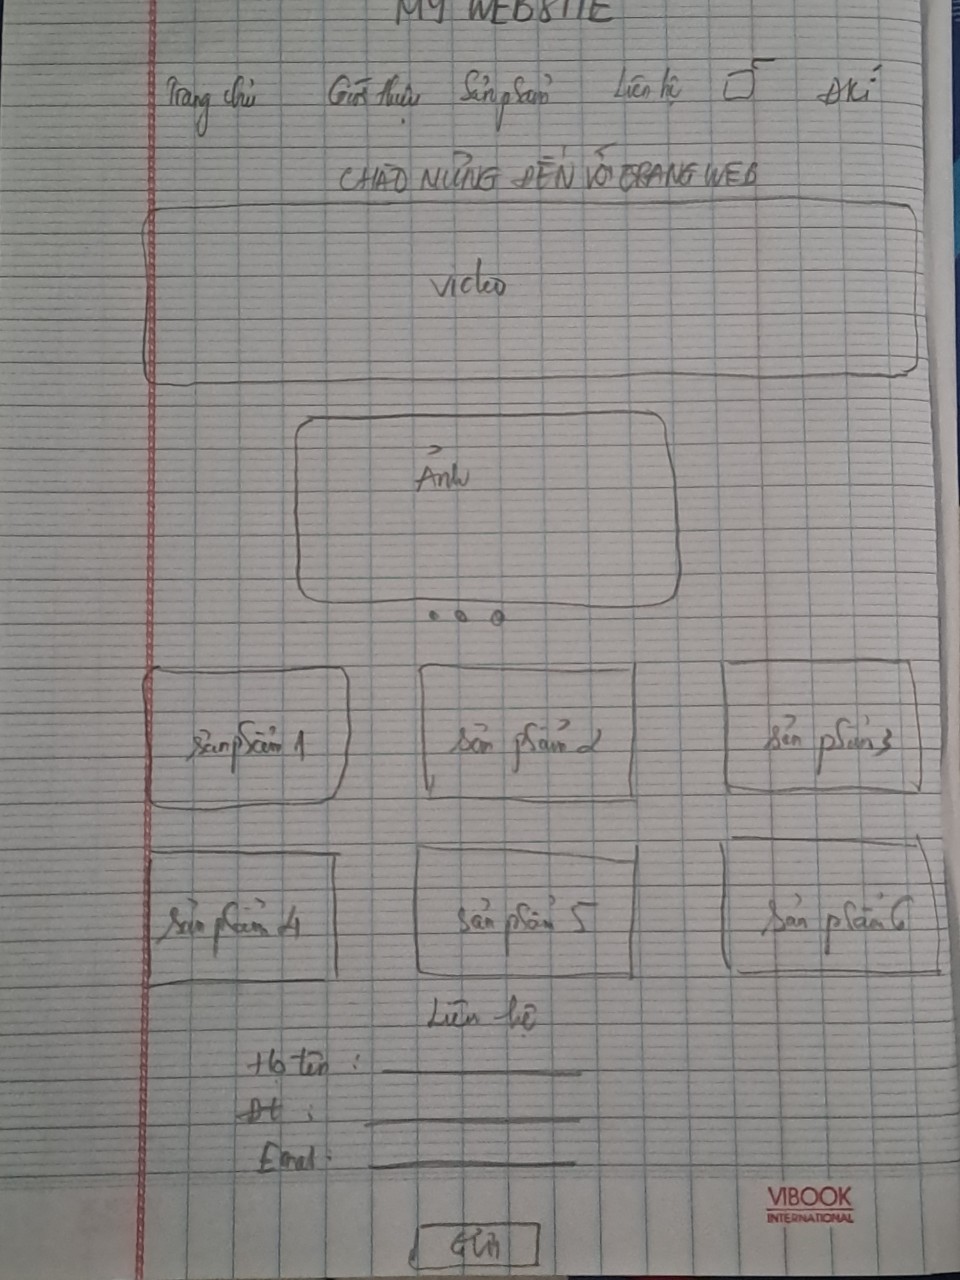 MY WEBSITE
Trang chủ Giới thiệu Sản phẩm Liên hệ ĐKí
CHÀO MỪNG ĐẾN VỚI TRANG WEB
Video
Ảnh
Sản phẩm 1 Sản phẩm 2 Sản phẩm 3
Sản phẩm 4 Sản phẩm 5 Sản phẩm 6
Liên hệ
Họ tên :
Đt :
Email :
VIBOOK
INTERNATIONAL
Gửi